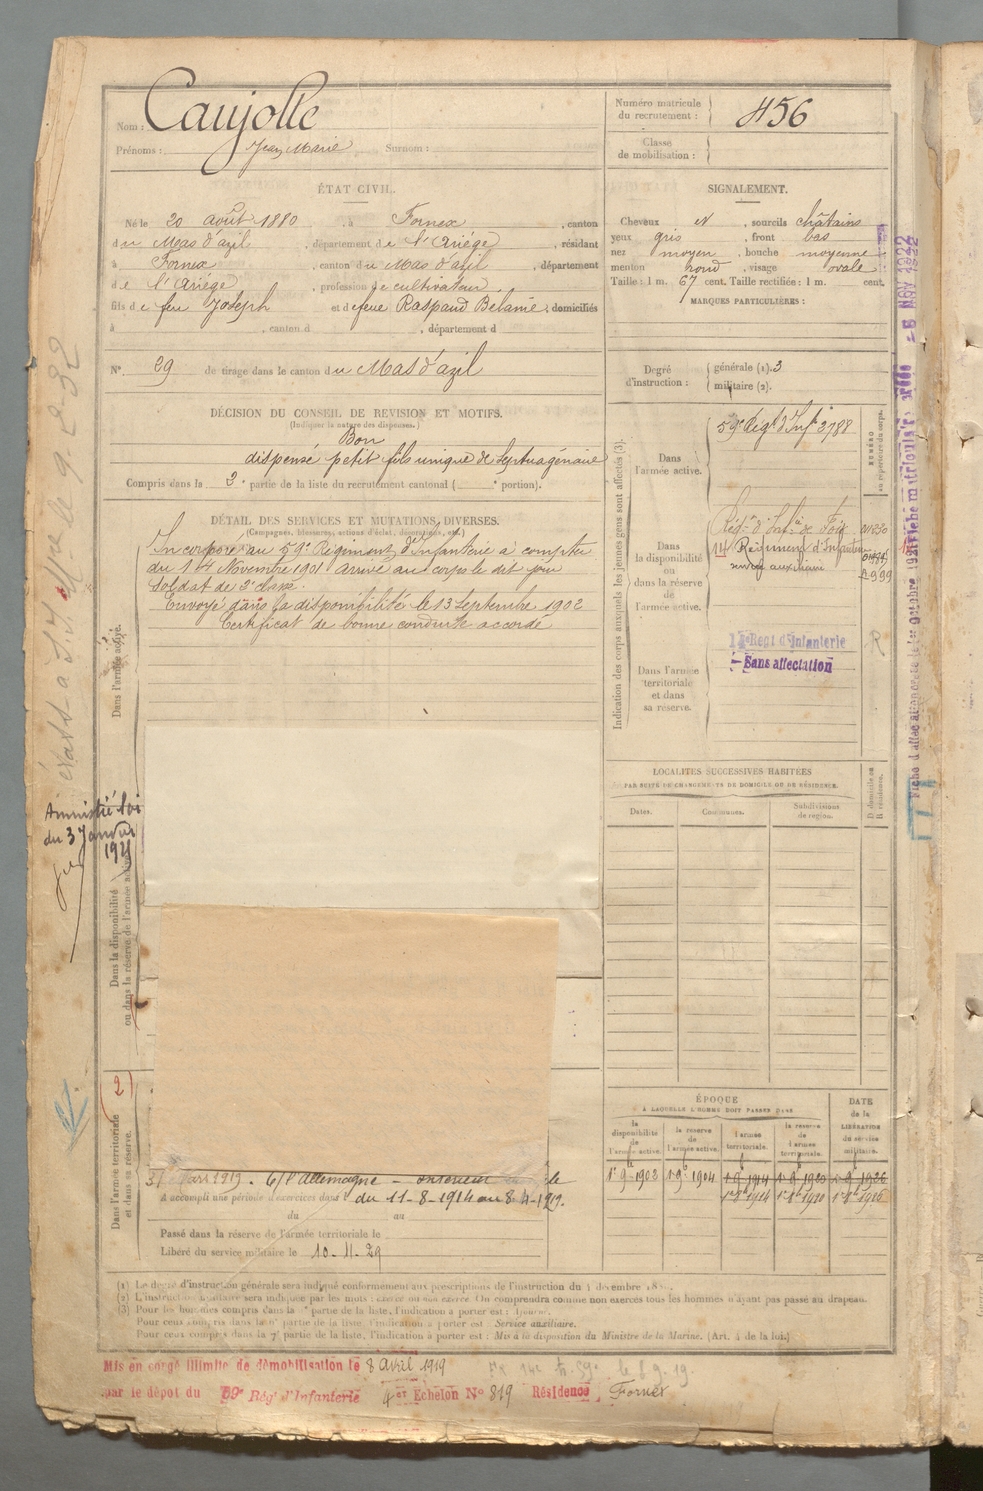 Nom : Caujolle
Prénoms : Jean Marie Surnom :
Numéro matricule du recrutement : 456
Classe de mobilisation :
ÉTAT CIVIL.
Né le 20 août 1880, à Fornex, canton
du Mas d'azil, département de l'Ariège, résidant
à Fornex, canton du Mas d'azil, département
de l'Ariège, profession de cultivateur,
fils de feu Joseph et de feue Raspaud Belanie, domiciliés
à , canton d , département d
N° 29 de tirage dans le canton du Mas d'azil
SIGNALEMENT.
Cheveux N, sourcils châtains
yeux gris, front bas
nez moyen, bouche moyenne
menton rond, visage ovale
Taille : 1 m. 67 cent. Taille rectifiée : 1 m. cent.
MARQUES PARTICULIÈRES :
Degré d'instruction :
générale (1). 3
militaire (2).
DÉCISION DU CONSEIL DE REVISION ET MOTIFS.
(Indiquer la nature des dispenses.)
Bon
dispensé petit fils unique de Septuagénaire
Compris dans la 2e partie de la liste du recrutement cantonal ( e portion).
DÉTAIL DES SERVICES ET MUTATIONS DIVERSES.
(Campagnes, blessures, actions d'éclat, décorations, etc.)
Incorporé au 59e Régiment d'Infanterie à compter
du 14 Novembre 1901 arrivé au corps le dit jour
Soldat de 2e classe.
Envoyé dans la disponibilité le 13 Septembre 1902
Certificat de bonne conduite accordé
Dans l'armée active.
Amnistié loi
du 3 Janvier
1921
Dans la disponibilité
ou dans la réserve de l'armée active.
(2)
Dans l'armée territoriale
et dans sa réserve.
31 Mars 1919. C/ l'Allemagne – intérieur
A accompli une période d'exercices dans l du 11-8-1914 au 8-4-1919.
du au
Passé dans la réserve de l'armée territoriale le
Libéré du service militaire le 10-11-29
Indication des corps auxquels les jeunes gens sont affectés (3).
NUMÉRO
au répertoire du corps.
Dans l'armée active.
59e Régt d'Infie 3788
Dans la disponibilité ou dans la réserve de l'armée active.
Régnt d'Infie de Foix
14 Régiment d'Infanterie
Dans l'armée territoriale et dans sa réserve.
Regt d'Infanterie
Sans affectation
R
LOCALITÉS SUCCESSIVES HABITÉES
PAR SUITE DE CHANGEMENTS DE DOMICILE OU DE RÉSIDENCE.
Dates.
Communes.
Subdivisions de région.
D domicile ou R résidence.
ÉPOQUE
À LAQUELLE L'HOMME DOIT PASSER DANS
DATE de la LIBÉRATION du service militaire.
la disponibilité de l'armée active.
la réserve de l'armée active.
l'armée territoriale.
la réserve de l'armée territoriale.
1-9-1902 1-9-1904 1-9-1914 1-9-1920 1-9-1926
1-8-1914 1-8-1920 1-8-1926
(1) Le degré d'instruction générale sera indiqué conformément aux prescriptions de l'instruction du 4 décembre
(2) L'instruction militaire sera indiquée par les mots : exercé ou non exercé. On comprendra comme non exercés tous les hommes n'ayant pas passé au drapeau.
(3) Pour les hommes compris dans la partie de la liste, l'indication à porter est : Ajourné.
Pour ceux compris dans la partie de la liste, l'indication à porter est : Service auxiliaire.
Pour ceux compris dans la 7e partie de la liste, l'indication à porter est : Mis à la disposition du Ministre de la Marine. (Art. 4 de la loi.)
Mis en congé illimité de démobilisation le 8 avril 1919
par le dépôt du 59e Régt d'Infanterie 4e Echelon N° 819 Résidence Fornex
-8 NOV 1922